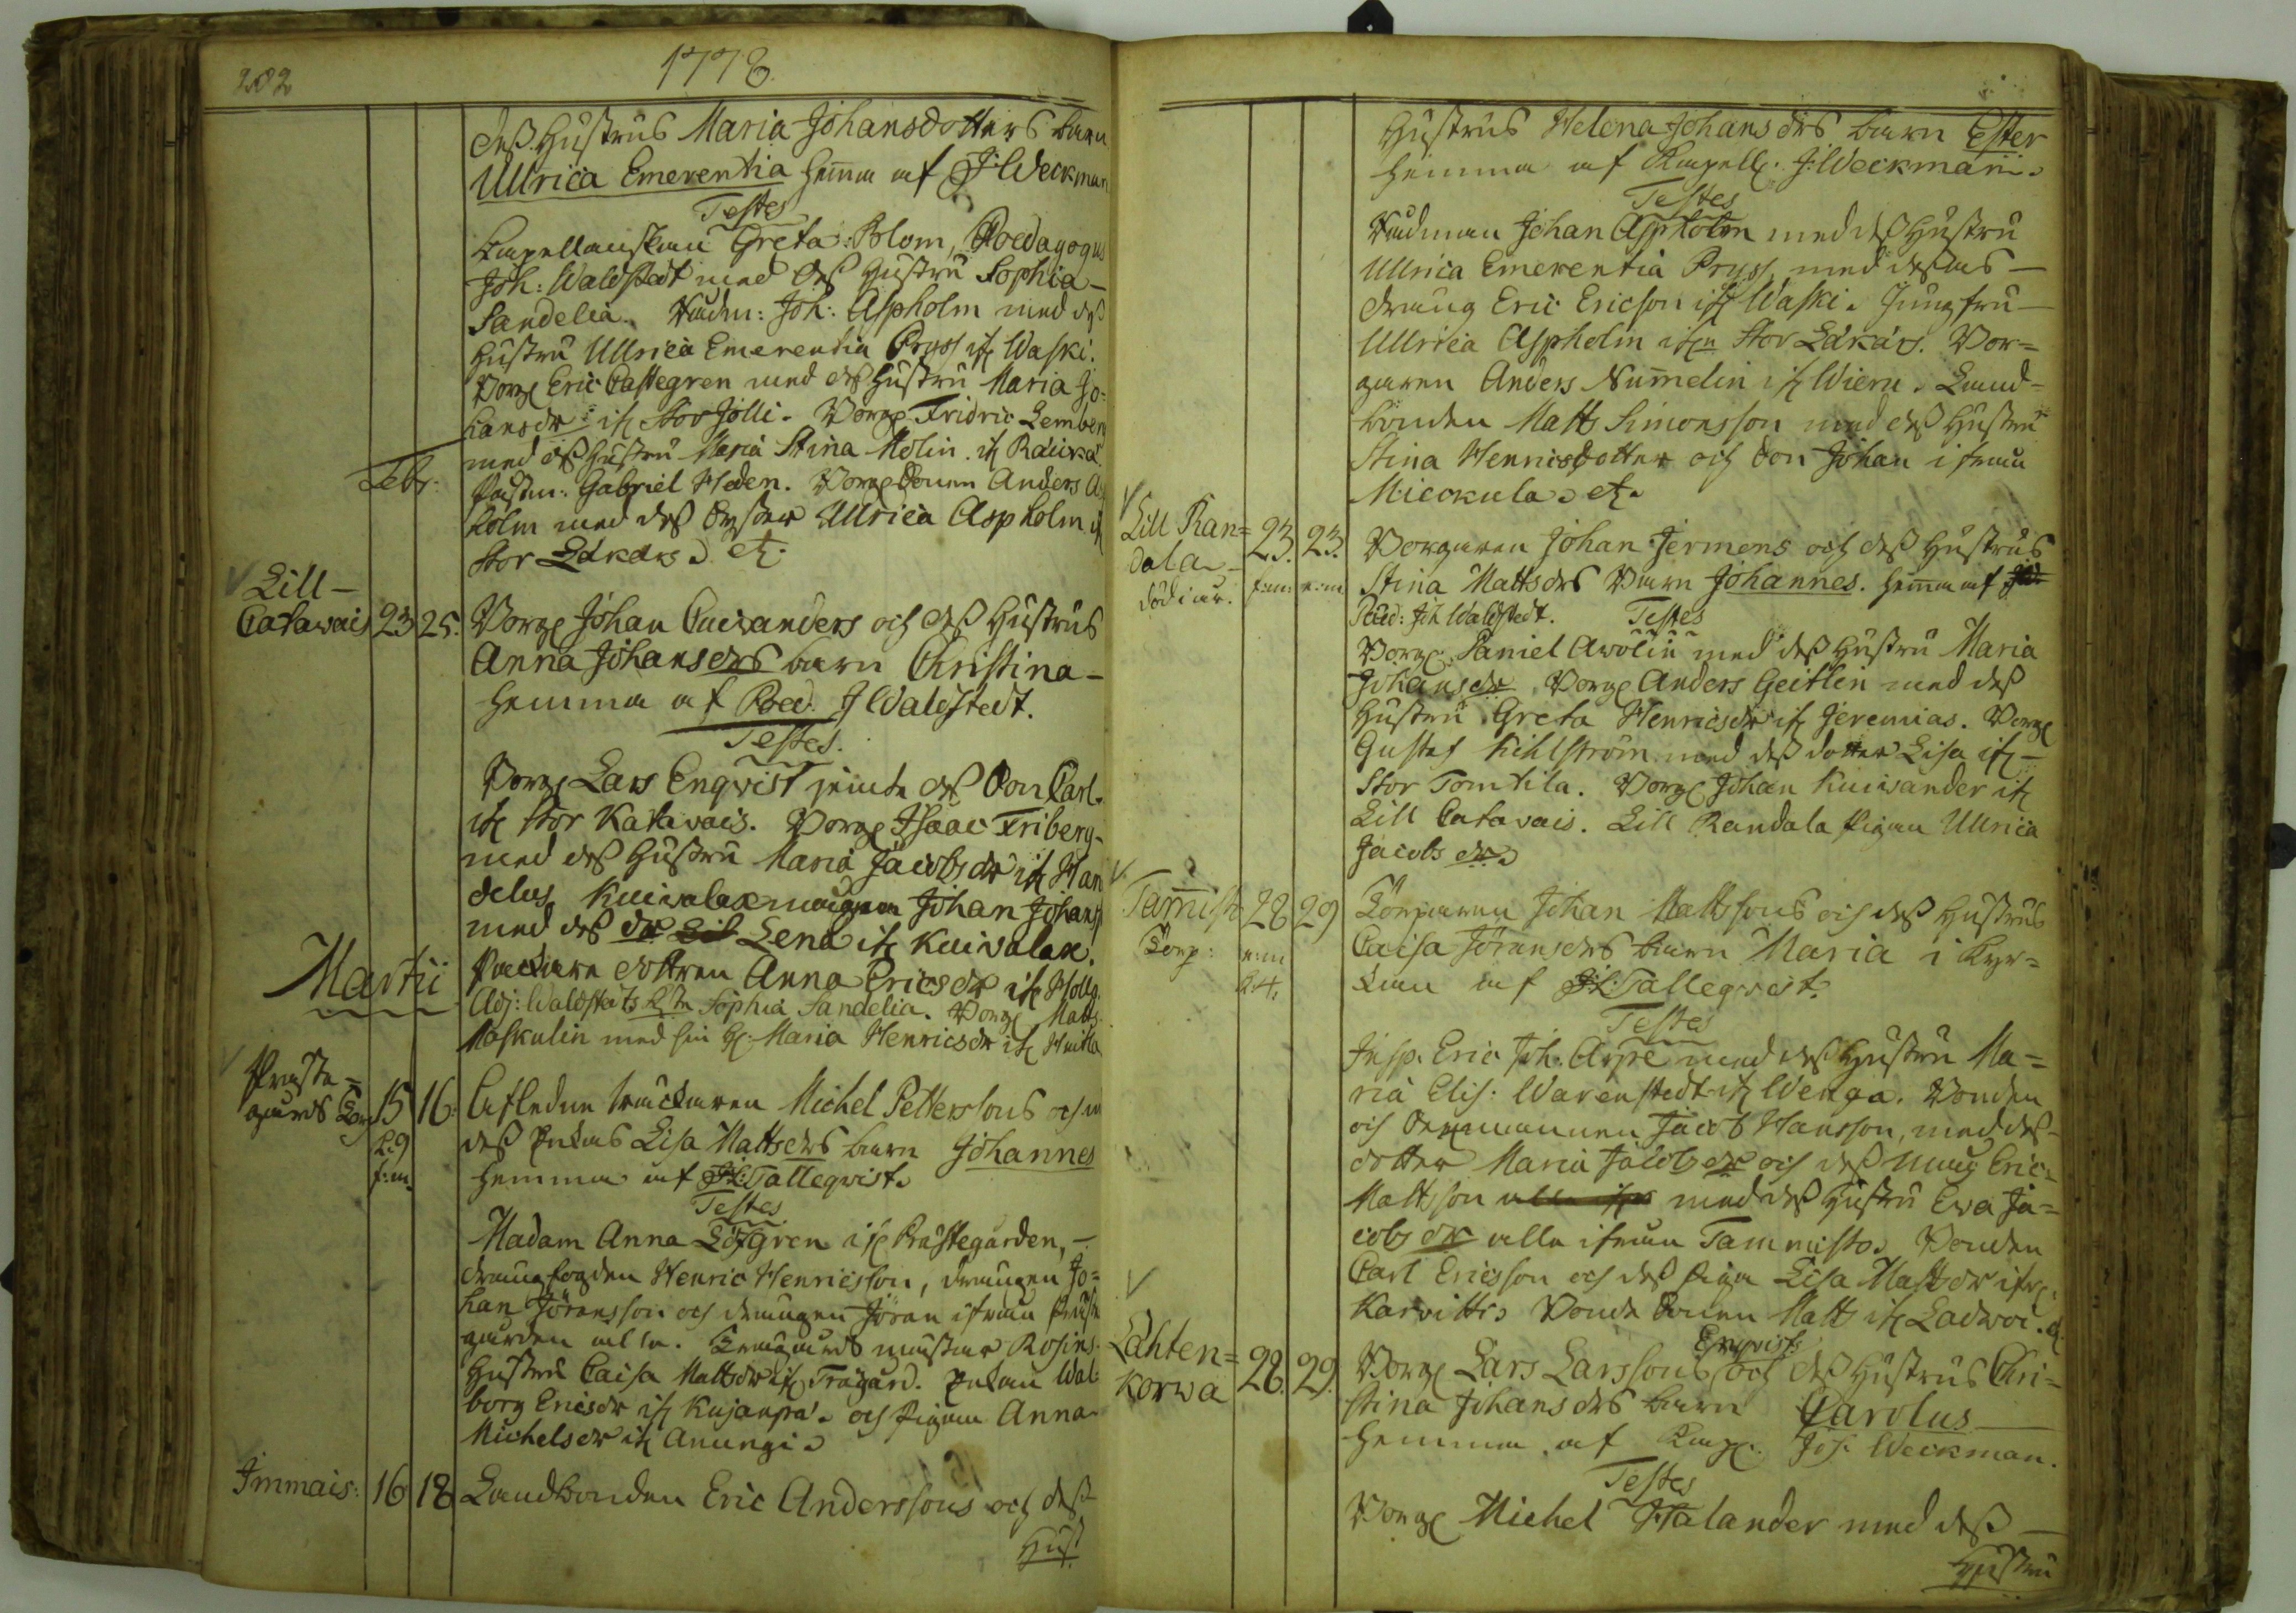 202
1778.
dess Hustrus Maria Johansdotters barn
Ullrica Emerentia hemma af J: Weckman
Testes
Capellanskan Greta: Blom, Poedagogus
Joh: Waldstedt med dess Hustru Sophia
Sandelia. Rådm: Joh: Aspholm med dess
Hustru Ullrica Emerentia Pryss if. Waski.
Borg. Eric Castegren med dess Hustru Maria Jo=
hansdr if. Stor Jolli. Borg. Fridric Lemberg
med dess Hustru Maria Stina Molin. if. Rauka
Febr:
Gabriel Heden. Borg. Sonen Anders As
holm med dess Syster Ullrica Aspholm if
Stor Läkars. etc.
Lill-
Catawais 23 25. Borg. Johan Cuivanders och dess Hustrus
Anna Johansdrs barn Christina
hemma af Poed. J Waldstedt.
Testes.
Borg. Lars Enqvist jemte dess Son Carl.
if. Stor Katavais. Borg. Isaac Friberg
med dess Hustru Maria Jacobsdr if. Han
delus. Kuivalax Johan Johanss
med dess dr Lena if. Kuivalax.
dottren Anna Ericsdr if.
Martii
Adj: Waldstedts Sophia Sandelia. Borg. Matts
Maskulin med sin H. Maria Henricsdr if.
Präste=
gårds 15 16. Afledne Michel Petterssons och
k. 9 dess Enkas Lisa Mattsdrs barn Johannes
f:m. hemma af Tallegvist.
Testes
Madam Anna Löfgren if. Prästegården,
drängfogden Henric Henricsson, drengen Jo=
han Jöransson och drengen Jöran ifrån Präste
gården alla.
Hustru Caisa Mattsdr if. Trägård. Enkan Wal
borg Ericsdr if. Kujanpä. och Pigan Anna
Michelsdr if. Anungi.
Immais: 16 18 Landbonden Eric Anderssons och dess
Hust
Hustrus Helena Johansdrs barn Ester
hemma af Capell: J: Weckman.
Testes
Rådman Johan Aspholm med dess Hustru
Ullrica Emerentia Pryss, med desras
dräng Eric Ericson if. Waski. Jungfru
Ullrica Aspholm ifrn Stor Läkärs. Bor=
garen Anders Nummelin if. Wiern. Land=
bonden Matts Simonsson med dess Hustru
Stina Henricsdotter och Son Johan ifrån
Mieckula. etc.
Lill Ran=
dala 23. 23. Borgaren Johan Jermens och dess Hustrus
död i år. f:m: e:m Stina Mattsdrs Barn Johannes. hemma af
Poed: Joh Waldstedt. Testes
Borg. Daniel Awolin med dess Hustru Maria
Johansdr. Borg. Anders Geitlin med dess
Hustru Greta Henricsdr if. Jeremias. Borg.
Gustaf Kihlström med dess dotter Lisa if.
Stor Tomtila. Borg. Johan Kuivander if.
Lill Catavais. Lill Randala Pigan Ullrica
Jacobsdr.
Tammist: 28 29 Torparen Johan Mattssons och dess Hustrus
Torp: e:m Caisa Jöransdrs barn Maria i Kyr=
k.4. kan af Tallegvist.
Testes
Insp. Eric Joh: Arpe med dess Hustru Ma=
ria Elis: Warenstedt if. Wenga. Bonden
och Jacob Hansson, med dess
dotter Maria Jacobsdr och dess måg Eric
Mattsson med dess Hustru Ewa Ja=
cobsdr alla ifrån Tammisto. Bonden
Carl Ericsson och dess Piga Lisa Mattsdr ifr.
Karvitti. Bonde Sonen Matts if. Ladwoi.
Lahten=
korwa 28. 29. Borg. Lars Larssons Enqvists och dess Hustrus Chri=
stina Johansdrs barn Carolus
hemma af Cap. Joh: Weckman.
Testes
Borg. Michel Halander med dess
Hustru